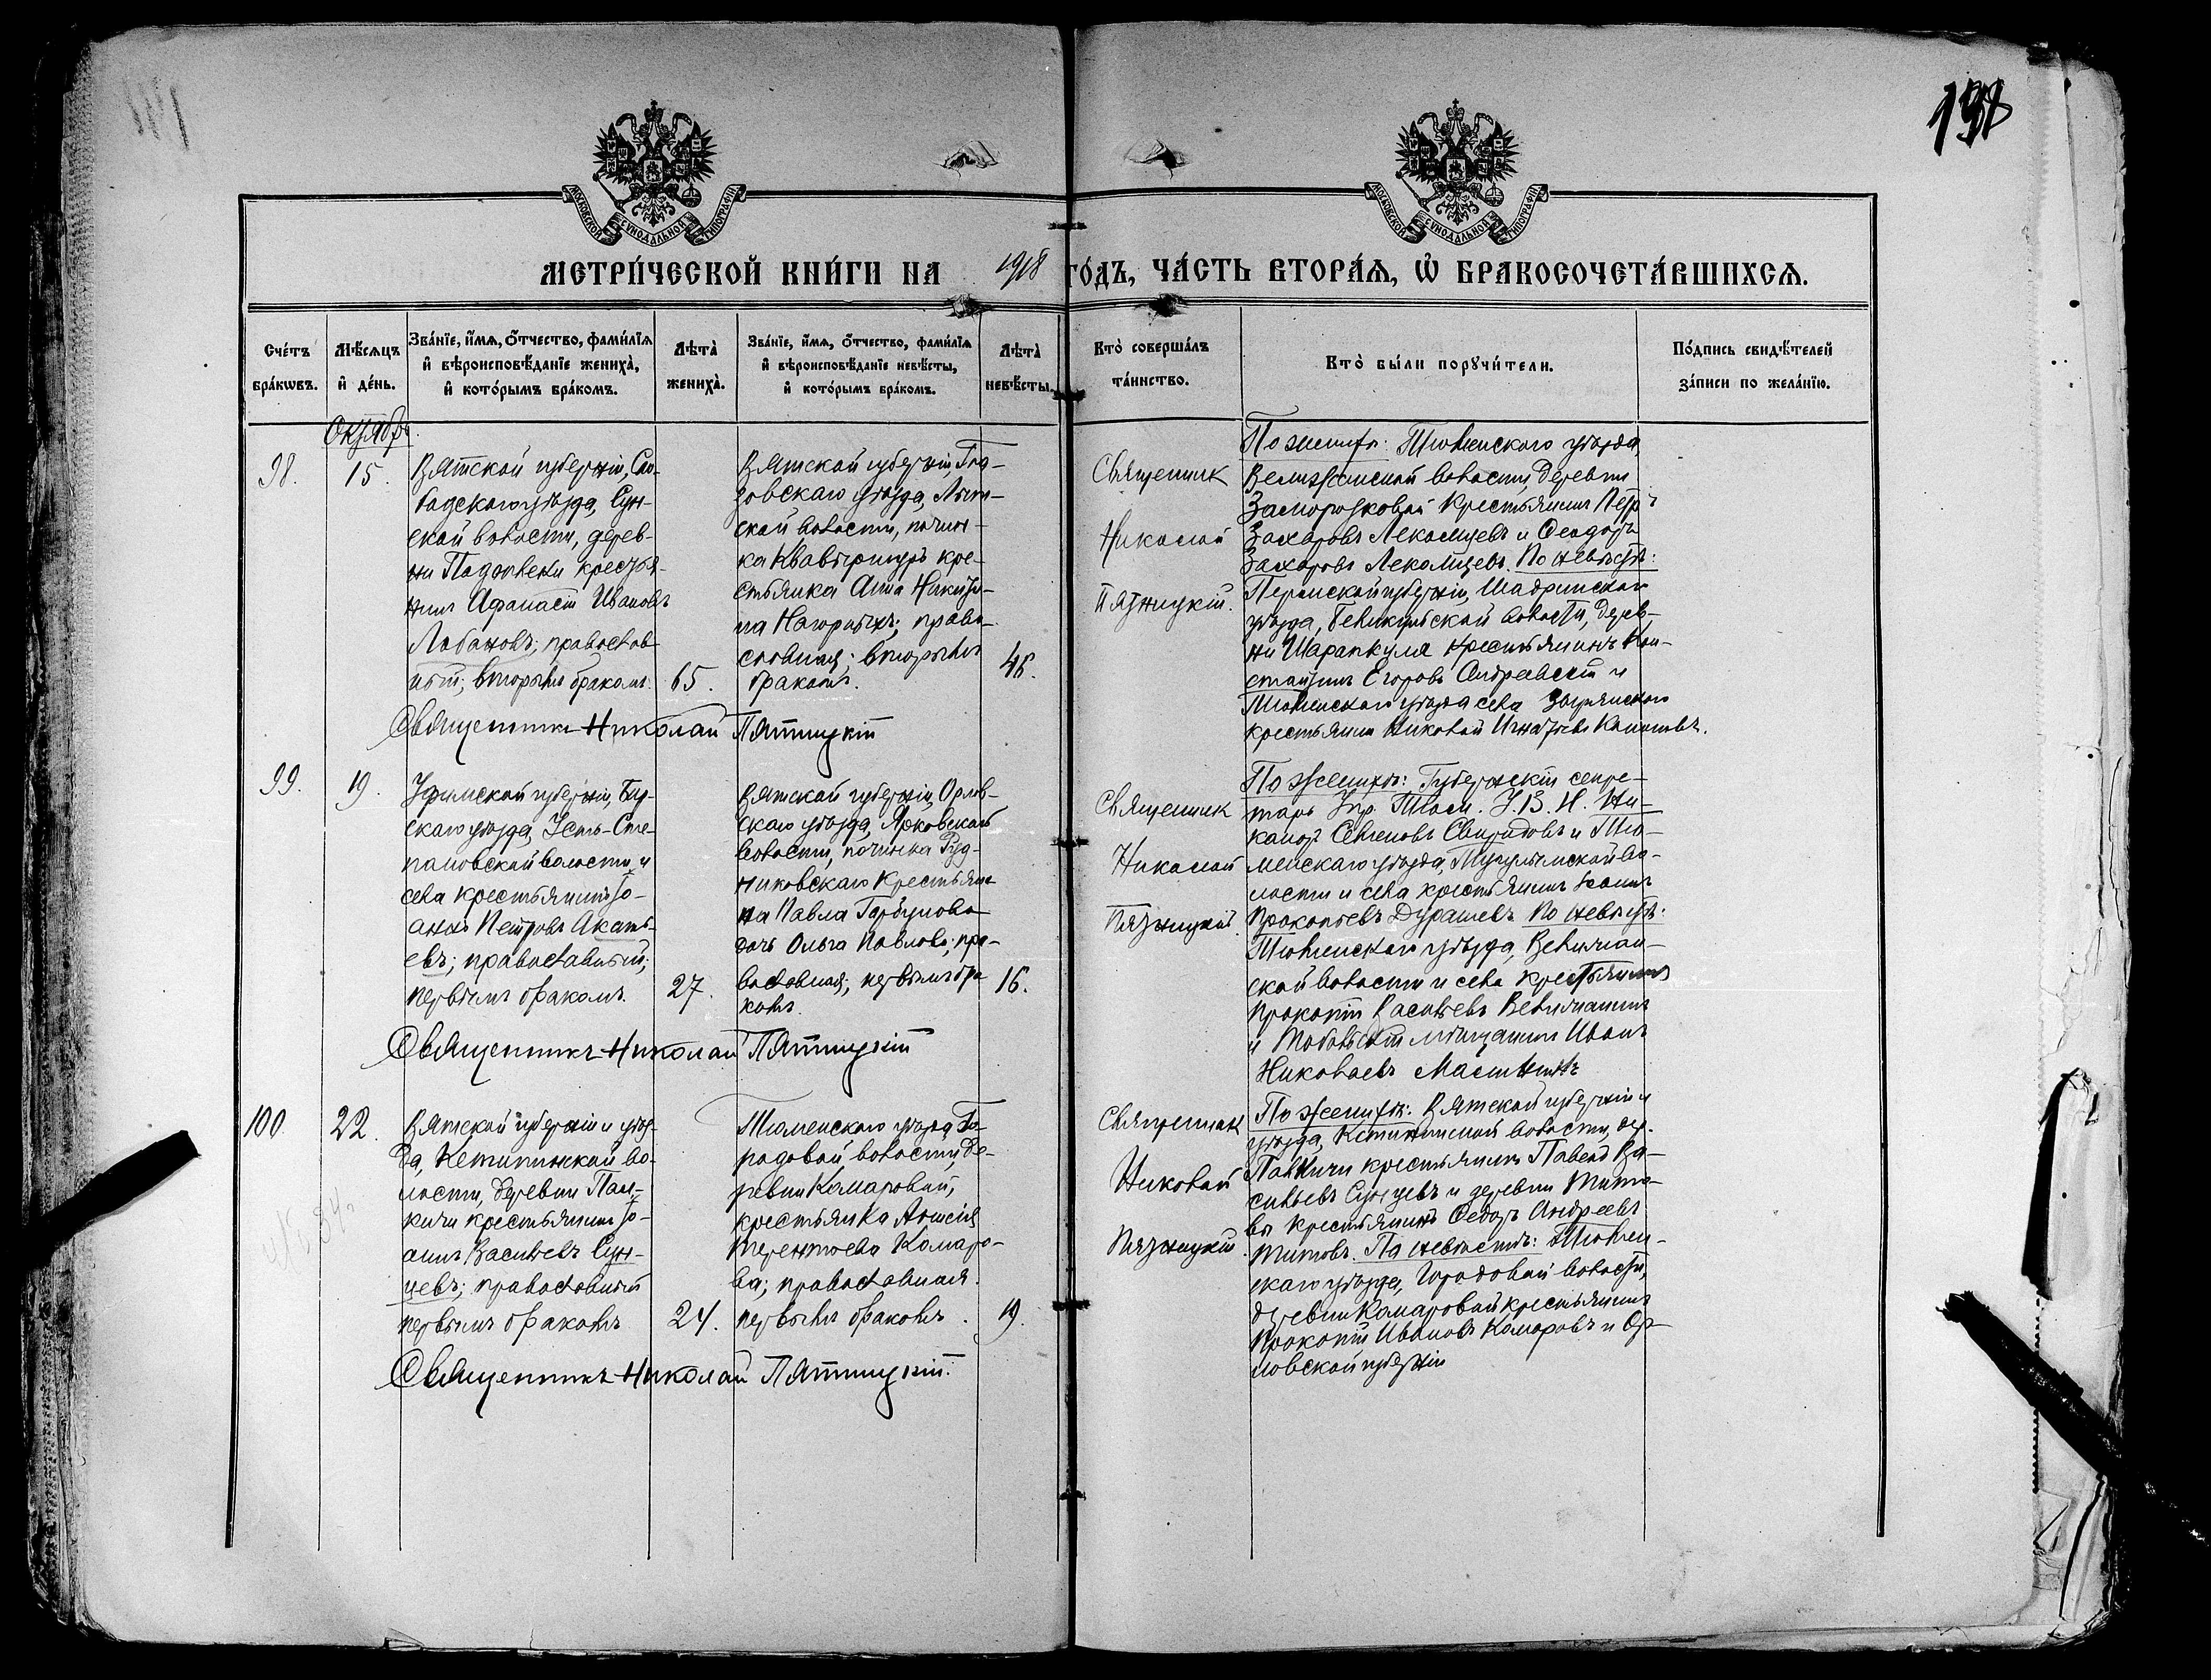 198
МОСКОВСКОЙ СѴНОДАЛЬНОЙ ТИПОГРАФІИ
МОСКОВСКОЙ СѴНОДАЛЬНОЙ ТИПОГРАФІИ
МЕТРИ́ЧЕСКОЙ КНИ́ГИ НА 1918 ГО́ДЪ, ЧА́СТЬ ВТОРА́Ѧ, Ѡ҆ БРАКОСОЧЕТА́ВШИХСѦ.
Сче́тъ
бра́кѡвъ.
Мѣ́сѧцъ
и҆ де́нь.
Зва́нїе, и҆́мѧ, ѻ҆́тчество, фами́лїѧ
и҆ вѣроисповѣ́данїе жениха̀,
и҆ кото́рымъ бра́комъ.
Лѣта̀
жениха̀.
Зва́нїе, и҆́мѧ, ѻ҆́тчество, фами́лїѧ
и҆ вѣроисповѣ́данїе невѣ́сты,
и҆ кото́рымъ бра́комъ.
Лѣта̀
невѣ́сты.
Кто̀ соверша́лъ
та́инство.
Кто̀ бы́ли порꙋчи́тели.
По́дпись свидѣ́телей
за́писи по жела́нїю.
Октябрь.
98.
15.
Вятской губерніи, Сло-
бодского уѣзда, Сун-
ской волости, дерев-
ни крестья-
нинъ Афанасій Ивановъ
Лобановъ; православ-
ный; вторымъ бракомъ.
65.
Вятской губерніи, Гла-
зовскаго уѣзда,
ской волости, почин-
ка кре-
стьянка Анна Никити-
на Нагорныхъ; право-
славная; вторымъ
бракомъ.
46.
Священникъ
Николай
Пятницкій.
По женихѣ: Тюменского уѣзда,
Велижанской волости, деревни
Заморозковой крестьянинъ Петръ
Захаровъ Лекомцевъ и Ѳеодоръ
Захаровъ Лекомцевъ. По невѣстѣ:
Пермской губерніи, Шадринскаго
уѣзда, волости, дерев-
ни Шарапкуля крестьянинъ Кон-
стантинъ Егоровъ Андреевскій и
Тюменскаго уѣзда села
крестьянинъ Николай Игнатьевъ
Священникъ Николай Пятницкій
99.
19.
Уфимской губерніи, Бир-
скаго уѣзда, Усть-Сте-
пановской волости и
села крестьянинъ Іо-
аннъ Петровъ Акать-
евъ; православный;
первымъ бракомъ.
27.
Вятской губерніи, Орлов-
скаго уѣзда, Ярковской
волости, починка Руд-
никовскаго крестьяни-
на Павла Горбунова
дочь Ольга Павлова; пра-
вославная; первымъ бра-
комъ.
16.
Священникъ
Николай
Пятницкій.
По женихѣ: Губернскій секре-
тарь Упр. Тюм. У. В. Н. Ни-
каноръ Семеновъ Свиридовъ и Тю-
менскаго уѣзда, Тугулымской во-
лости и села крестьянинъ Іоаннъ
Прокопьевъ Дурашевъ. По невѣстѣ:
Тюменскаго уѣзда, Велижан-
ской волости и села крестьянинъ
Прокопій Васильевъ Велижанинъ
и Тобольскій мѣщанинъ Иванъ
Николаевъ
Священникъ Николай Пятницкій
100
22.
Вятской губерніи и уѣз-
да, Кстининской во-
лости, деревни Пан-
кичи крестьянинъ Іо-
аннъ Васильевъ Сун-
цевъ; православный
первымъ бракомъ
24.
Тюменского уѣзда Го-
родовой волости, де-
ревни Комаровой,
крестьянка Анисія
Терентьева Комаро-
ва; православная.
первымъ бракомъ.
19.
Священникъ
Николай
Пятницкій.
По женихѣ: Вятской губерніи и
уѣзда, Кстининской волости, дер.
Панкичи крестьянинъ Павелъ Ва-
сильевъ Сунцевъ и деревни Тито-
вы крестьянинъ Ѳедоръ Андреевъ
Титовъ. По невѣстѣ: Тюмен-
скаго уѣзда, Городовой волости,
деревни Комаровой крестьянинъ
Прокопій Ивановъ Комаровъ и Ор-
ловской губерніи
Священникъ Николай Пятницкій.